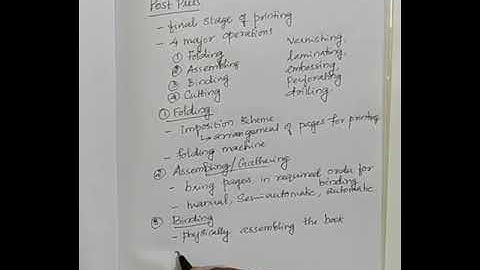 Post Press
- final stage of printing
- 4 major operations
① Folding
② Assembling
③ Binding
④ Cutting
Varnishing,
laminating,
embossing,
Perforating
drilling.
① Folding
- Imposition Scheme
↳ arrangement of pages for printing
- folding machine
② Assembling/Gathering
- bring pages in required order for
binding
- manual, Semi-automatic, automatic
③ Binding
- physically assembling the book